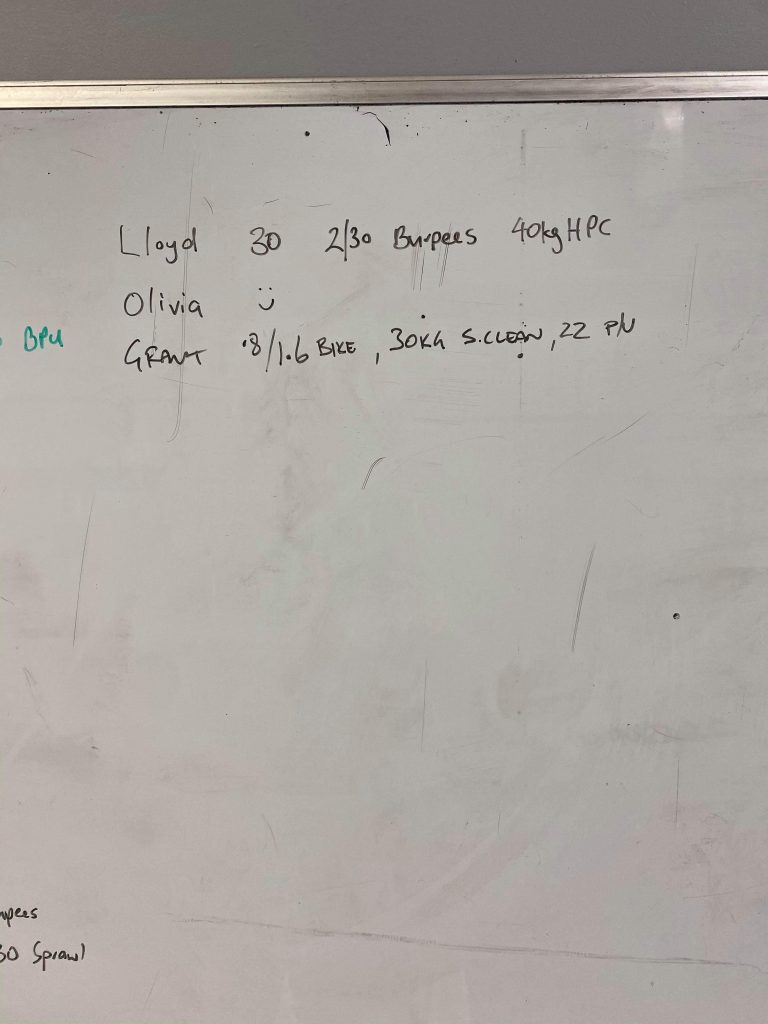 Lloyd 30 2/30 Burpees 40kg HPC
Olivia :)
BPU
GRANT .8/1.6 BIKE, 30KG S.CLEAN, 22 P/U
30 Sprawl